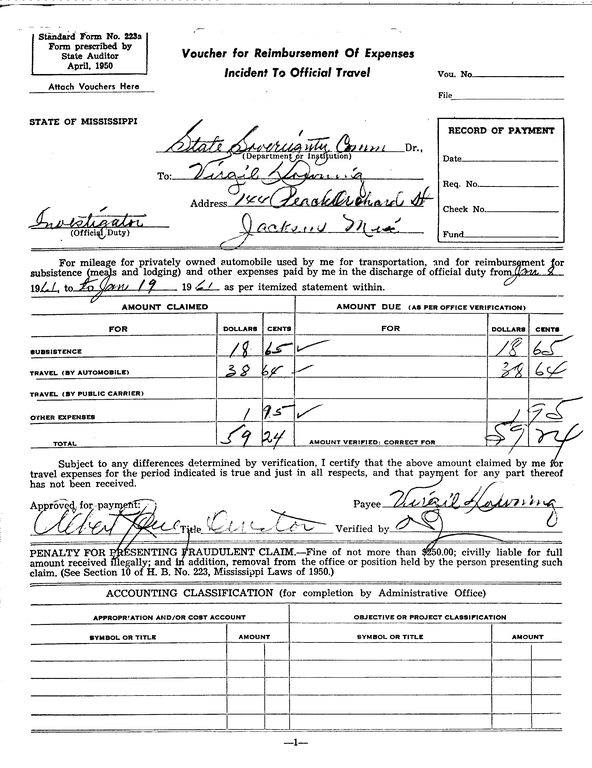 Standard Form No. 223a
Form prescribed by
State Auditor
April, 1950
Attach Vouchers Here
Voucher for Reimbursement Of Expenses
Incident To Official Travel
Vou. No.
File
STATE OF MISSISSIPPI
State Sovereignty Comm Dr.,
(Department or Institution)
To: Virgil Downing
Address 144 Peach Orchard St
Jackson Miss
Investigator
(Official Duty)
RECORD OF PAYMENT
Date
Req. No.
Check No.
Fund
For mileage for privately owned automobile used by me for transportation, and for reimbursment for
subsistence (meals and lodging) and other expenses paid by me in the discharge of official duty from Jan 8
1961, to to Jan 19 1961 as per itemized statement within.
AMOUNT CLAIMED AMOUNT DUE (AS PER OFFICE VERIFICATION)
FOR DOLLARS CENTS FOR DOLLARS CENTS
SUBSISTENCE 18 65 ✓ 18 65
TRAVEL (BY AUTOMOBILE) 38 64 ✓ 38 64
TRAVEL (BY PUBLIC CARRIER)
OTHER EXPENSES 1 95 ✓ 1 95
TOTAL 59 24 AMOUNT VERIFIED: CORRECT FOR 59 24
Subject to any differences determined by verification, I certify that the above amount claimed by me for
travel expenses for the period indicated is true and just in all respects, and that payment for any part thereof
has not been received.
Approved for payment: Payee Virgil Downing
Albert Title Director Verified by
PENALTY FOR PRESENTING FRAUDULENT CLAIM.—Fine of not more than $250.00; civilly liable for full
amount received illegally; and in addition, removal from the office or position held by the person presenting such
claim. (See Section 10 of H. B. No. 223, Mississippi Laws of 1950.)
ACCOUNTING CLASSIFICATION (for completion by Administrative Office)
APPROPRIATION AND/OR COST ACCOUNT OBJECTIVE OR PROJECT CLASSIFICATION
SYMBOL OR TITLE AMOUNT SYMBOL OR TITLE AMOUNT
—1—